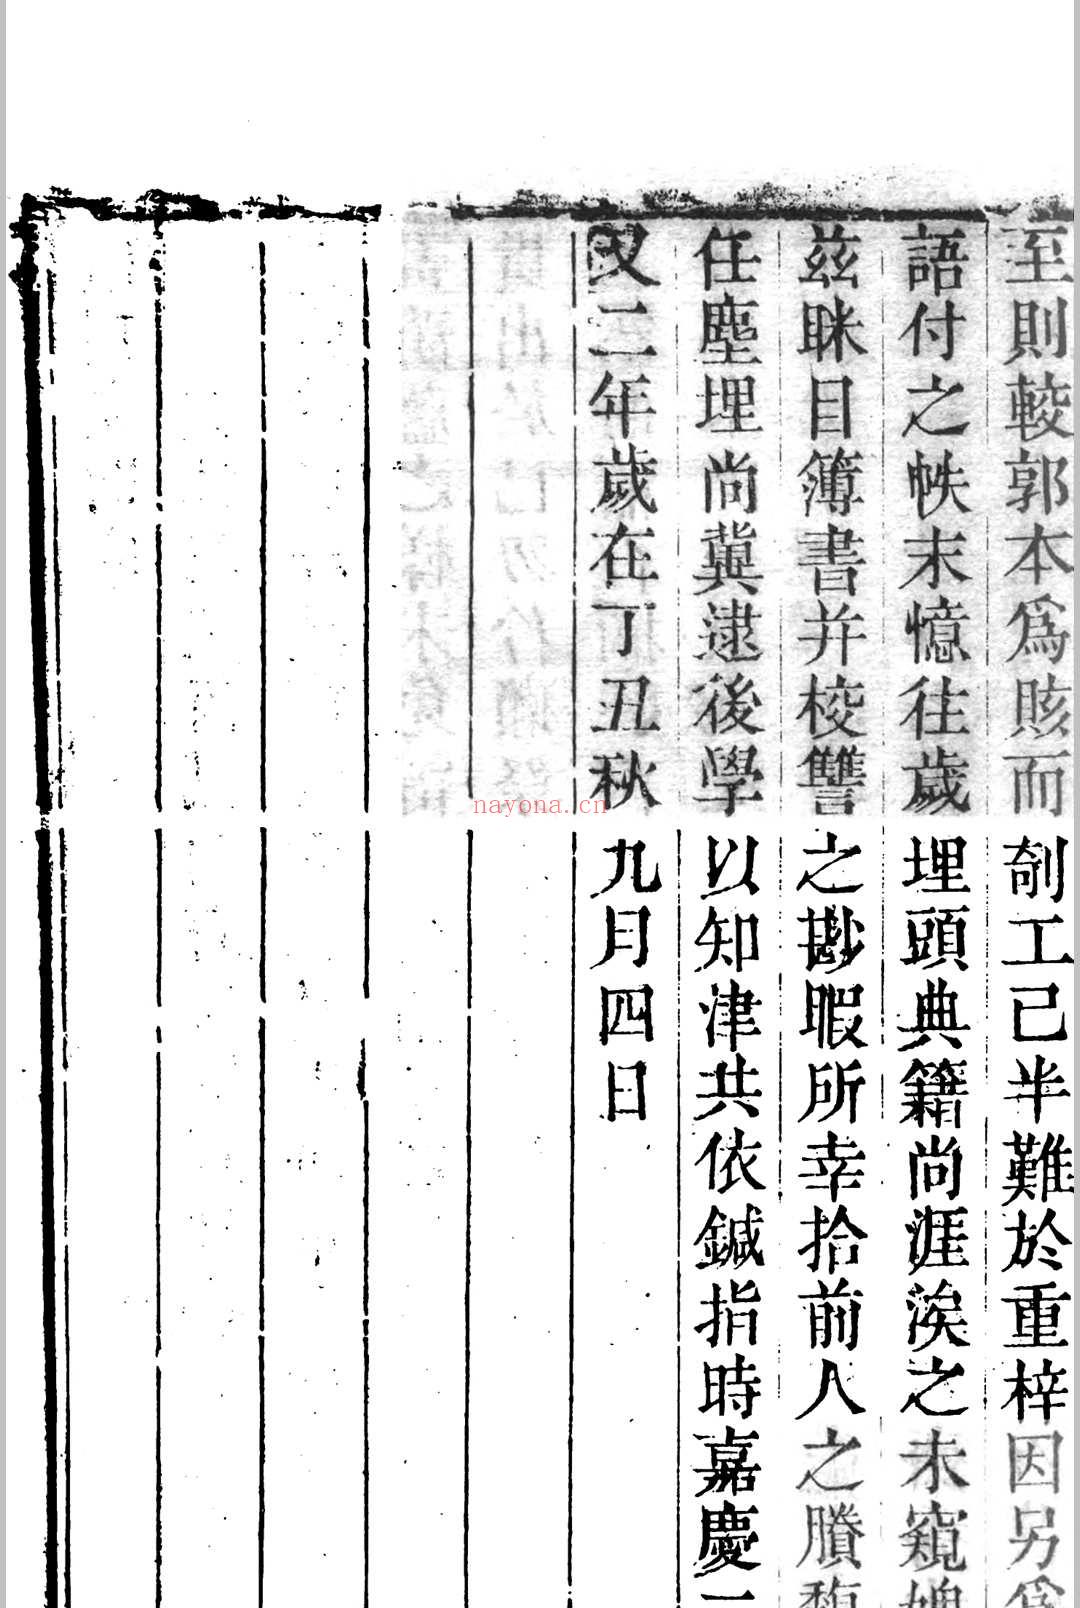 至則較郭本爲賅而剞工已半難於重梓因另爲
語付之帙末憶往歲埋頭典籍尚涯涘之未窺媿
茲眯目簿書并校讐之尠暇所幸拾前人之賸馥
任塵埋尚冀逮後學以知津共依鍼指時嘉慶二
又二年歲在丁丑秋九月四日
nayona.cn